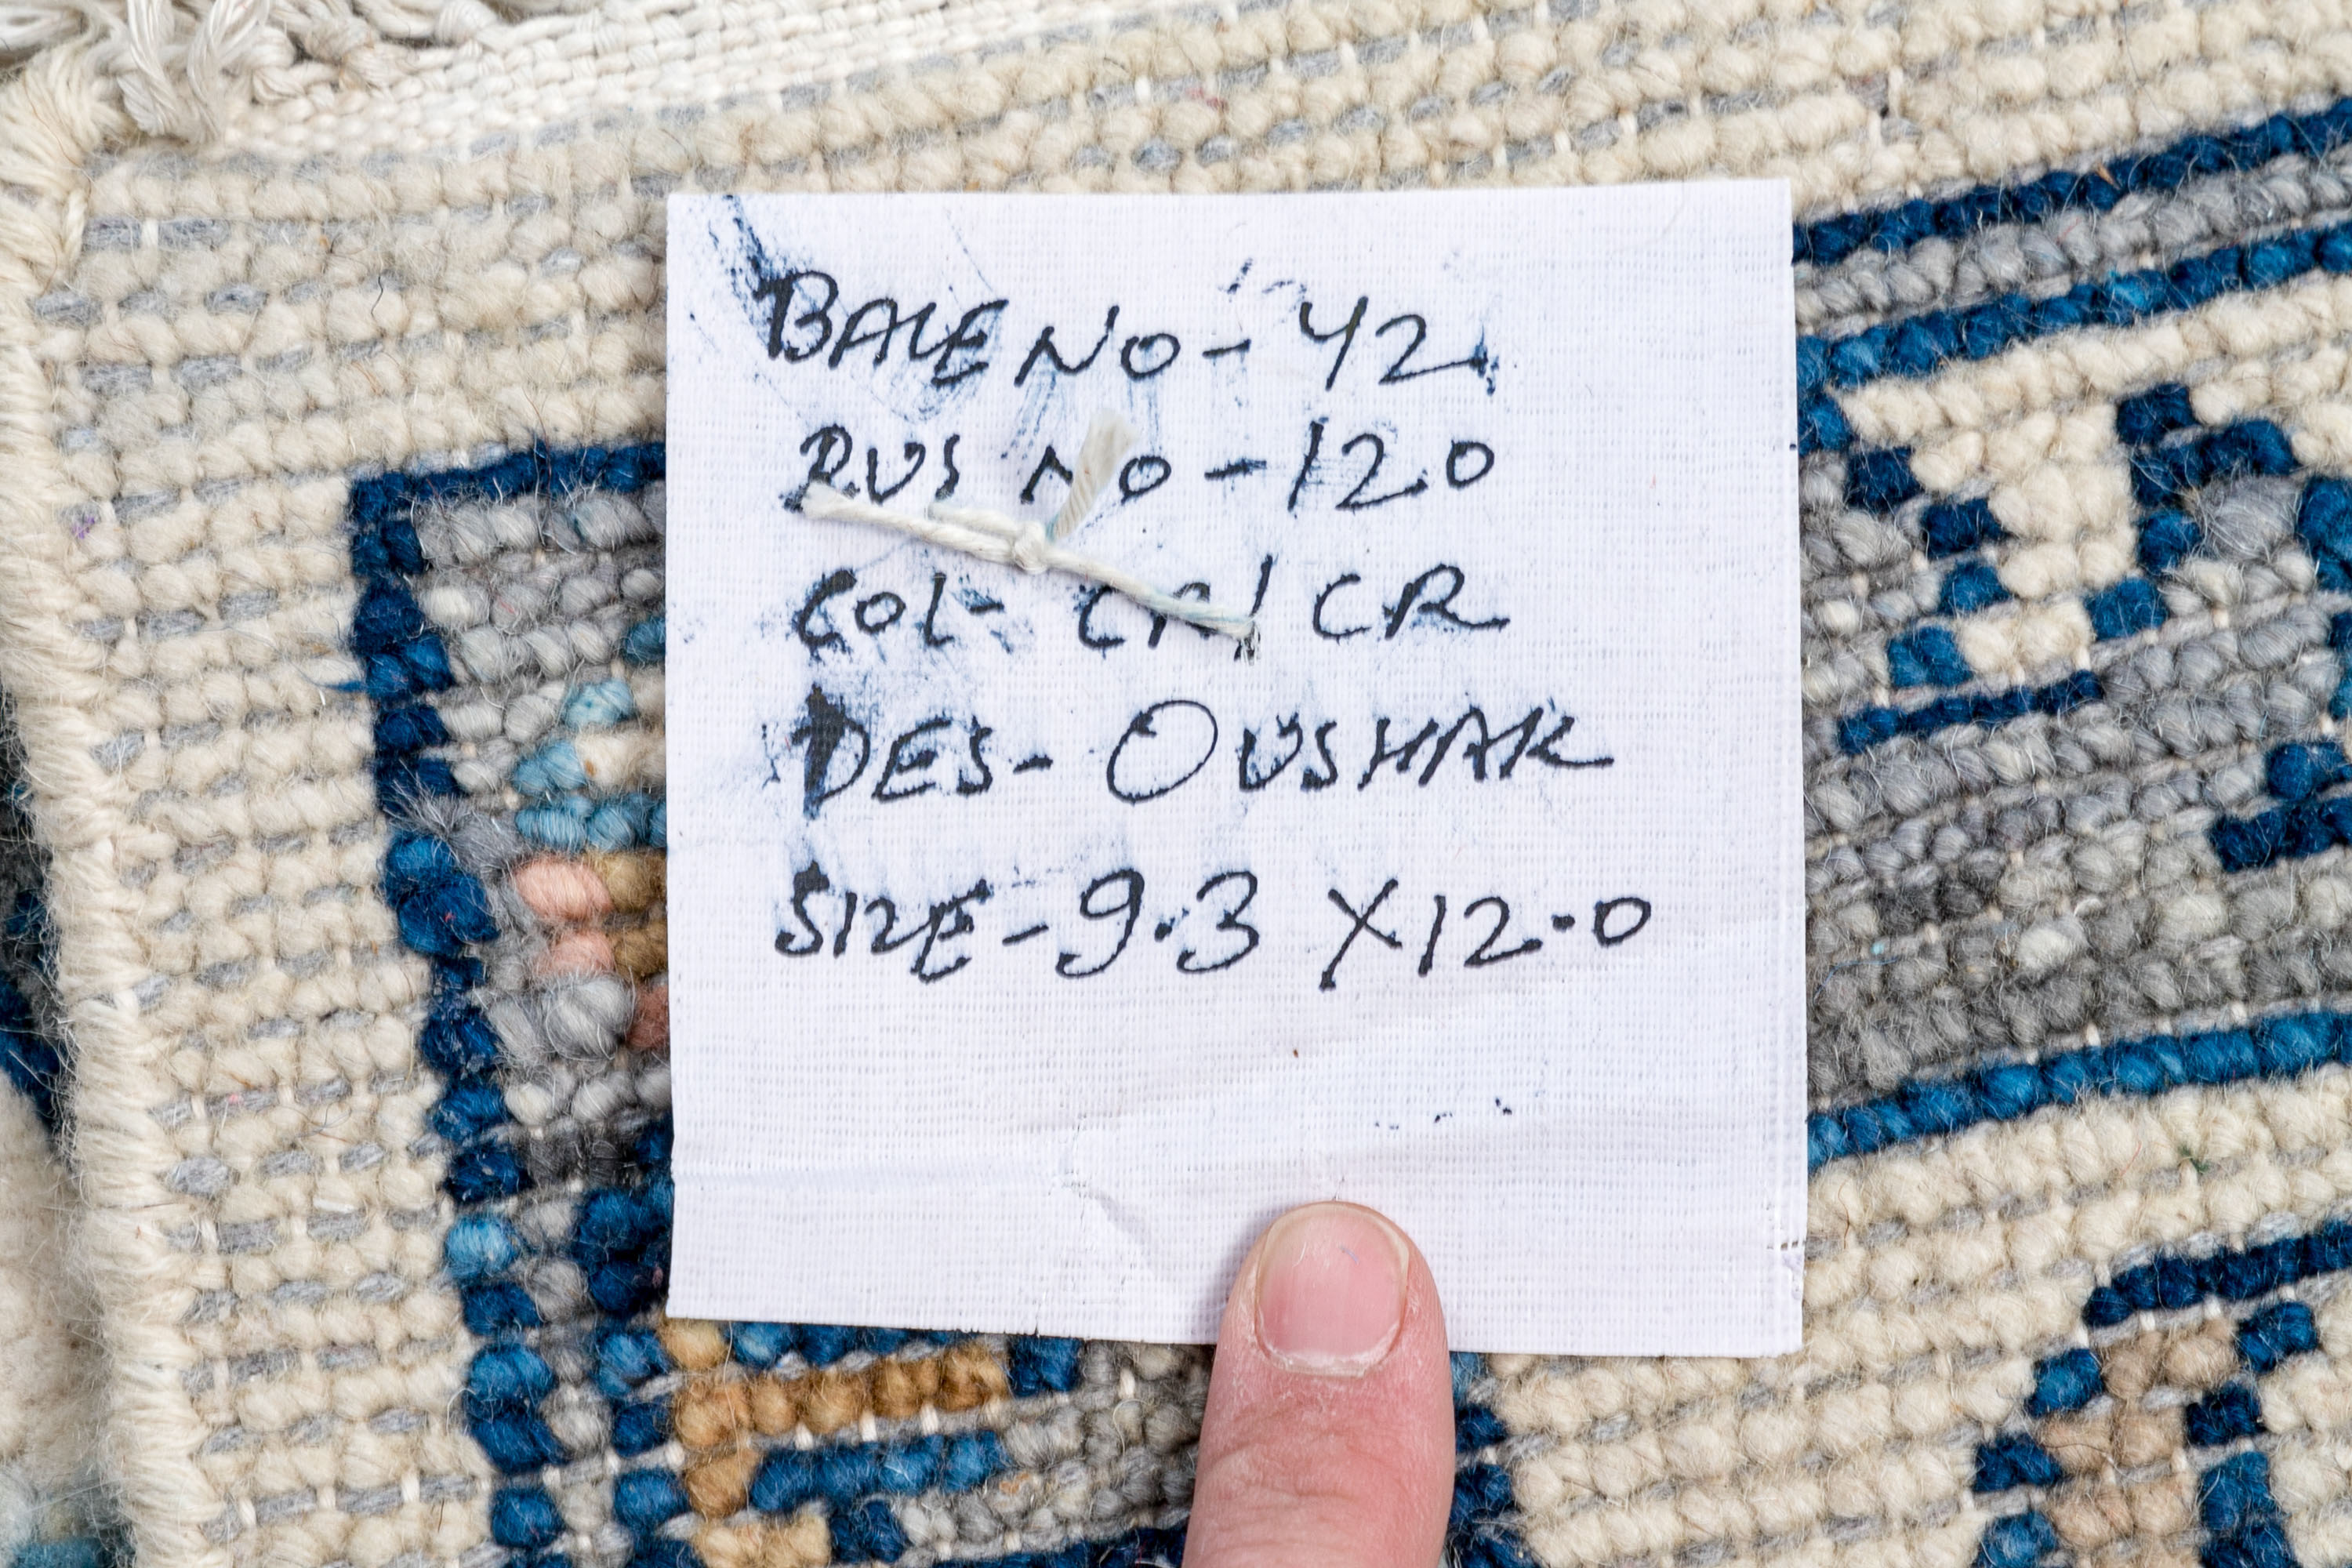 BALE NO - 42
RUS NO - 120
COL - CR/CR
DES - OUSHAK
SIZE - 9.3 X 12.0